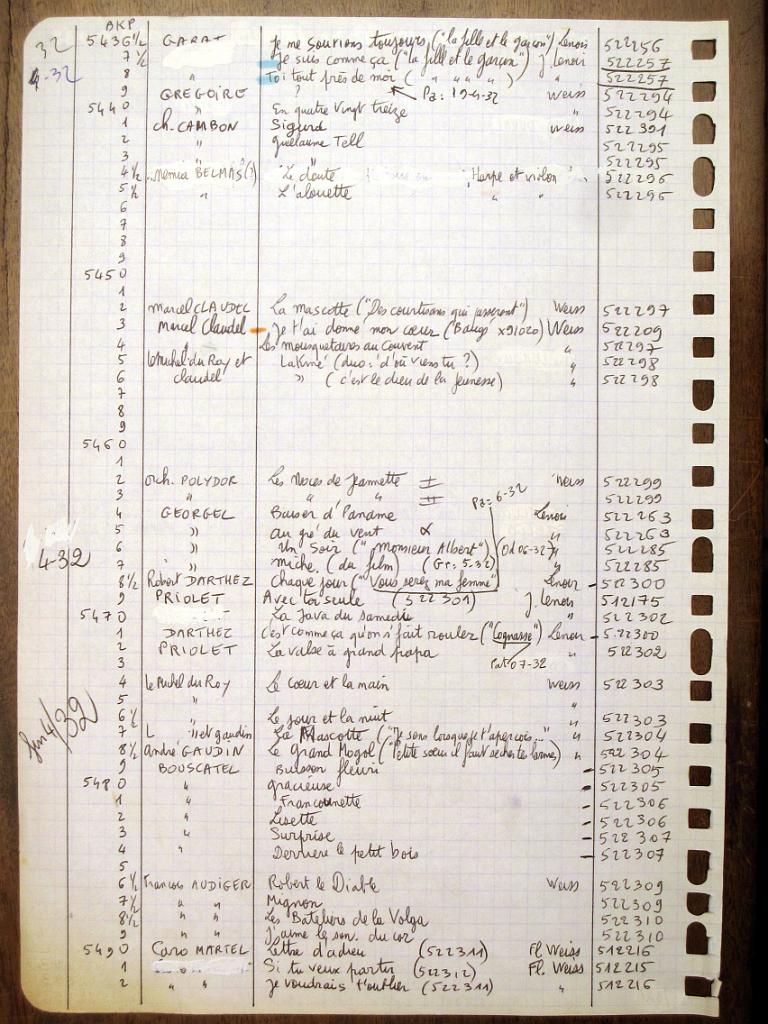 BKP
32 5436½ GARAT Je me souviens toujours ("la fille et le garçon") Lenoir 522256
4-32 7½ Je suis comme ça ("la fille et le garçon") J. Lenoir 522257
8 " Toi tout près de moi ( " " " " ) " 522257
9 GREGOIRE ? Pa: 19-4-32 Weiss 522294
5440 " En quatre vingt treize " 522294
1 Ch. CAMBON Sigurd Weiss 522391
2 " Guillaume Tell 522295
3 " 522295
4½ BELMAS(?) Le doute Harpe et violon 522296
5½ " L'alouette " " 522296
6
7
8
9
5450
1
2 Marcel CLAUDEL La mascotte ("Des courtisans qui passeront") Weiss 522297
3 Marcel Claudel Je t'ai donné mon cœur (X91020) Weiss 522209
4 " Les mousquetaires au couvent " 522297
5 le Michel du Roy et Lakmé (duo: d'où viens tu ?) " 522298
6 Claudel " (c'est le dieu de la jeunesse) " 522298
7
8
9
5460
1
2 Orch. POLYDOR Les Noces de Jeannette I Weiss 522299
3 " " " II 522299
4 GEORGEL Baiser d'Paname Pa: 6-32 Lenoir 522263
5 " au gré du vent α " 522263
4-32 6 " Un Soir ("Monsieur Albert") (Od 06-32) " 522285
7 " Miche. (du film) (Gr: 5.32) " 522285
8½ Robert DARTHEZ Chaque jour ("Vous serez ma femme") Lenoir - 522300
9 PRIOLET Avec toi seule (522301) J. Lenoir 512175
5470 La Java du samedi " 522302
1 DARTHEZ C'est comme ça qu'on s'fait rouler ("Cognasse") Lenoir - 522300
2 PRIOLET La valse à grand papa " 522302
3 Pat 07-32
4 le Michel du Roy Le cœur et la main Weiss 522303
5 " "
6½ Le jour et la nuit " 522303
7 L " et gaudin La Mascotte ("Je sens lorsque je t'aperçois...") " 522304
8½ André GAUDIN Le Grand Mogol ("Petite sœur il faut sécher tes larmes) " 522304
9 BOUSCATEL Buisson fleuri - 522305
5480 " gracieuse - 522305
1 " Francounette - 522306
2 " Lisette - 522306
3 " Surprise - 522307
4 " Derrière le petit bois - 522307
5
6½ François AUDIGER Robert le Diable Weiss 522309
7½ " " Mignon 522309
8½ " " Les Bateliers de la Volga 522310
9 " " J'aime le son. du cor 522310
5490 Caro MARTEL Lettre d'adieu (522311) Fl Weiss 512216
1 Si tu veux partir (522312) Fl. Weiss 512215
2 " " Je voudrais t'oublier (522311) " 512216